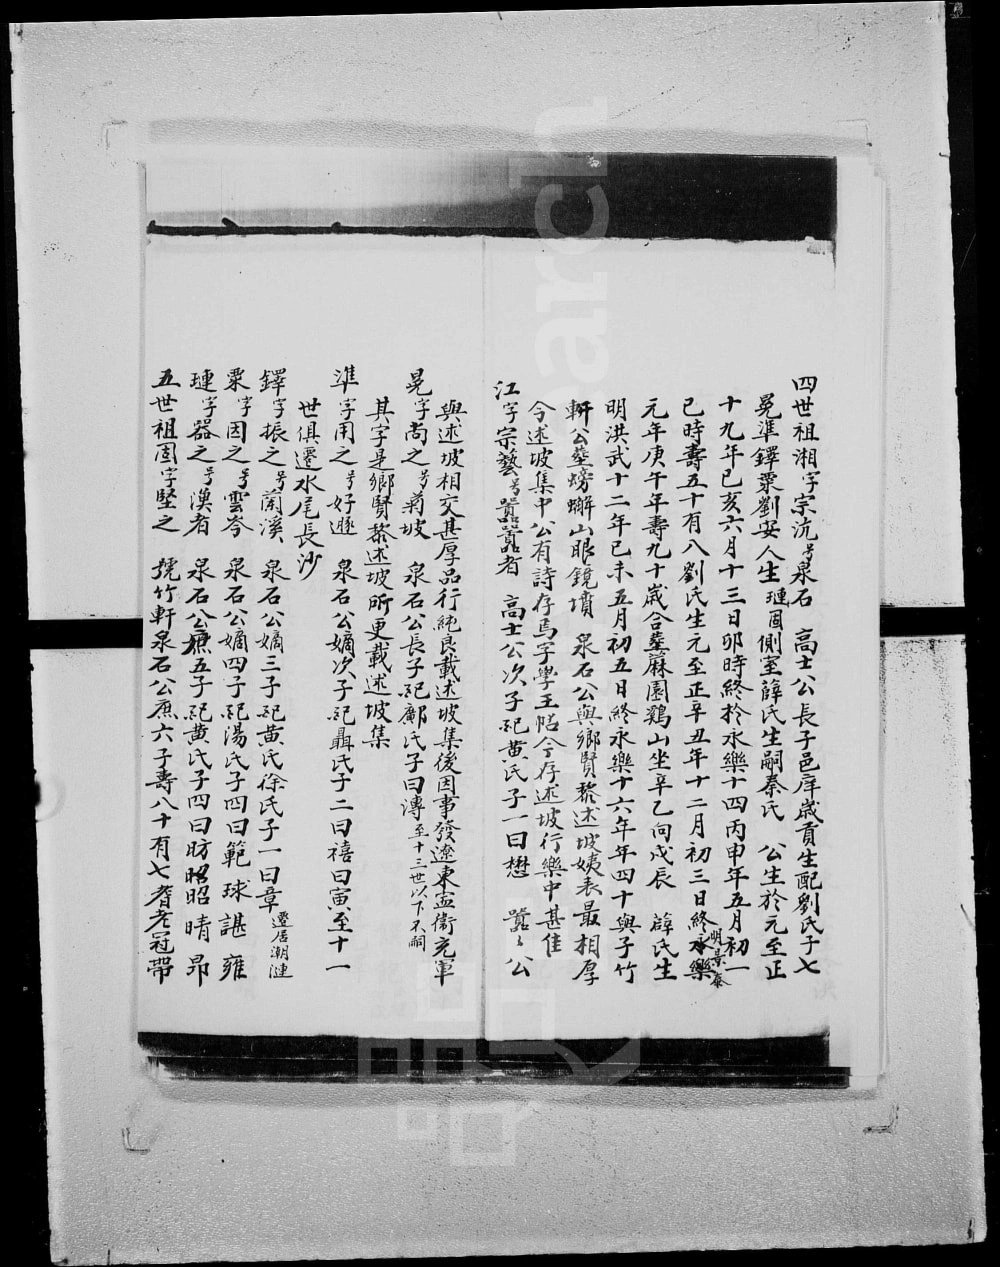 四世祖湘字宗沆号泉石 高士公長子邑庠歲貢生配劉氏子七
晃準鐸稟劉安人生璉固側室薛氏生嗣秦氏 公生於元至正
十九年己亥六月十三日卯時終於永樂十四丙申年五月初一
巳時壽五十有八劉氏生元至正辛丑年十二月初三日終永樂明景泰
元年庚午年壽九十歲合塟蔴園鷄山坐辛乙向戍辰 薛氏生
明洪武十二年己未五月初五日終永樂十六年年四十與子竹
軒公塟螃蠏山眼鏡墳 泉石公與鄉賢黎述坡姨表最相厚
今述坡集中公有詩存焉字學王帖今存述坡行樂中甚佳
江字宗藝号囂囂者 高士公次子妃黄氏子一曰懋 囂〻公
與述坡相交甚厚品行純良載述坡集後因事發遼東 衛充軍
晃字尚之号菊坡 泉石公長子妃鄺氏子曰漙至十三世以下不嗣
其字是鄉賢黎述坡所更載述坡集
準字用之号好遯 泉石公嫡次子妃聶氏子二曰禧曰寅至十一
世俱遷水尾長沙
鐸字振之号蘭溪 泉石公嫡三子妃黄氏徐氏子一曰章遷居潮漣
稟字因之号雲岑 泉石公嫡四子妃湯氏子四曰範球諶雍
璉字器之号漁者 泉石公庶五子妃黄氏子四曰昉昭晴昴
五世祖固字堅之 號竹軒泉石公庶六子壽八十有七耆老冠帶